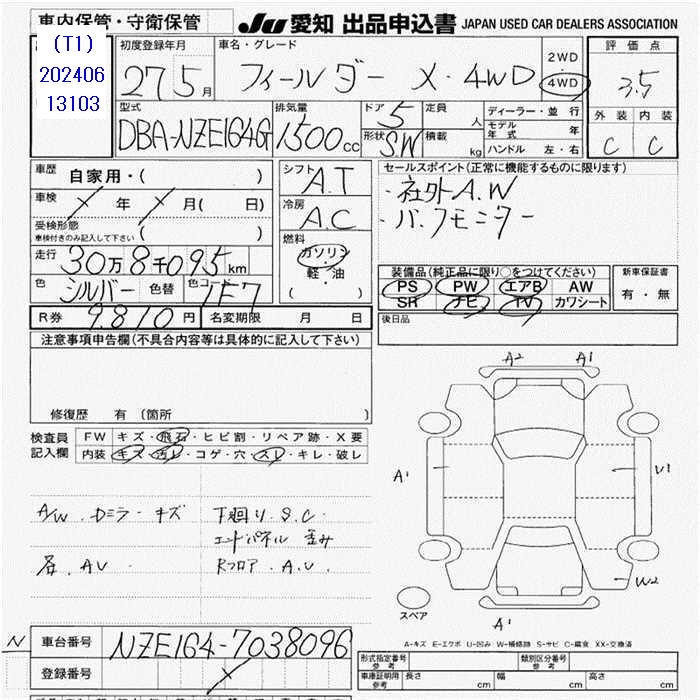 車内保管・守衛保管
JU 愛知 出品申込書 JAPAN USED CAR DEALERS ASSOCIATION
(T1)
202406
13103
初度登録年月
27 5 月
車名・グレード
フィールダー X・4WD
2WD
4WD
評価点
3.5
外装 内装
C C
型式
DBA-NZE164G
排気量
1500cc
ドア 5
形状 SW
定員 人
積載 kg
ディーラー・並行
モデル年式 年
ハンドル 左・右
車歴 自家用・( )
車検 X 年 X 月( 日)
受検形態
車検付きのみ記入して下さい ( )
走行 30万8千095km
色 シルバー 色替 色コード 1E7
シフト A.T
冷房 A.C
燃料
ガソリン
軽・油
( )
セールスポイント(正常に機能するものに限ります)
・社外A.W
・バックモニター
装備品(純正品に限り○をつけてください)
PS PW エアB AW
SR ナビ TV カワシート
新車保証書
有・無
R券 9.810 円 名変期限 月 日
後日品
注意事項申告欄(不具合内容等は具体的に記入して下さい)
修復歴 有 (箇所 )
検査員
記入欄
FW キズ・飛石・ヒビ割・リペア跡・X要
内装 キズ・汚レ・コゲ・穴・スレ・キレ・破レ
A/W . Dミラー キズ
下廻り.S.C.
エンドパネル 歪み
Rフロア .A.U.
A2 A1
A1
U1
W2
A1
スペア
A-キズ E-エクボ U-凹み W-補修跡 S-サビ C-腐食 XX-交換済
N 車台番号 NZE164-7038096
登録番号 X
形式指定番号
参考
類別区分番号
参考
車庫証明用
参考
長さ cm 幅 cm 高さ cm